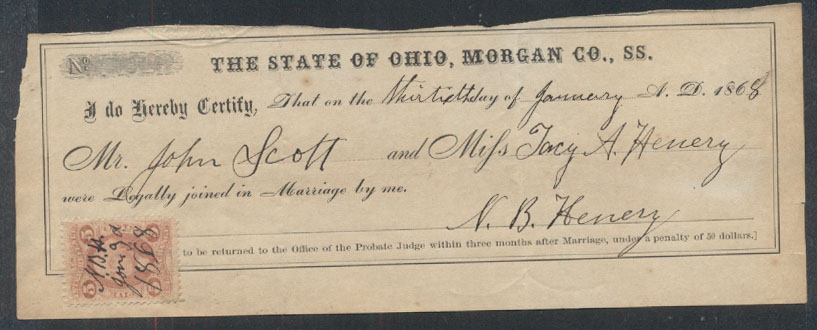 No
THE STATE OF OHIO, MORGAN CO., SS.
I do Hereby Certify, That on the Thirtieth day of January A. D. 1868
Mr. John Scott and Miss Tacy A. Henery
were Legally joined in Marriage by me.
N. B. Henery
to be returned to the Office of the Probate Judge within three months after Marriage, under a penalty of 50 dollars.]
5 5
N.B.H.
1868